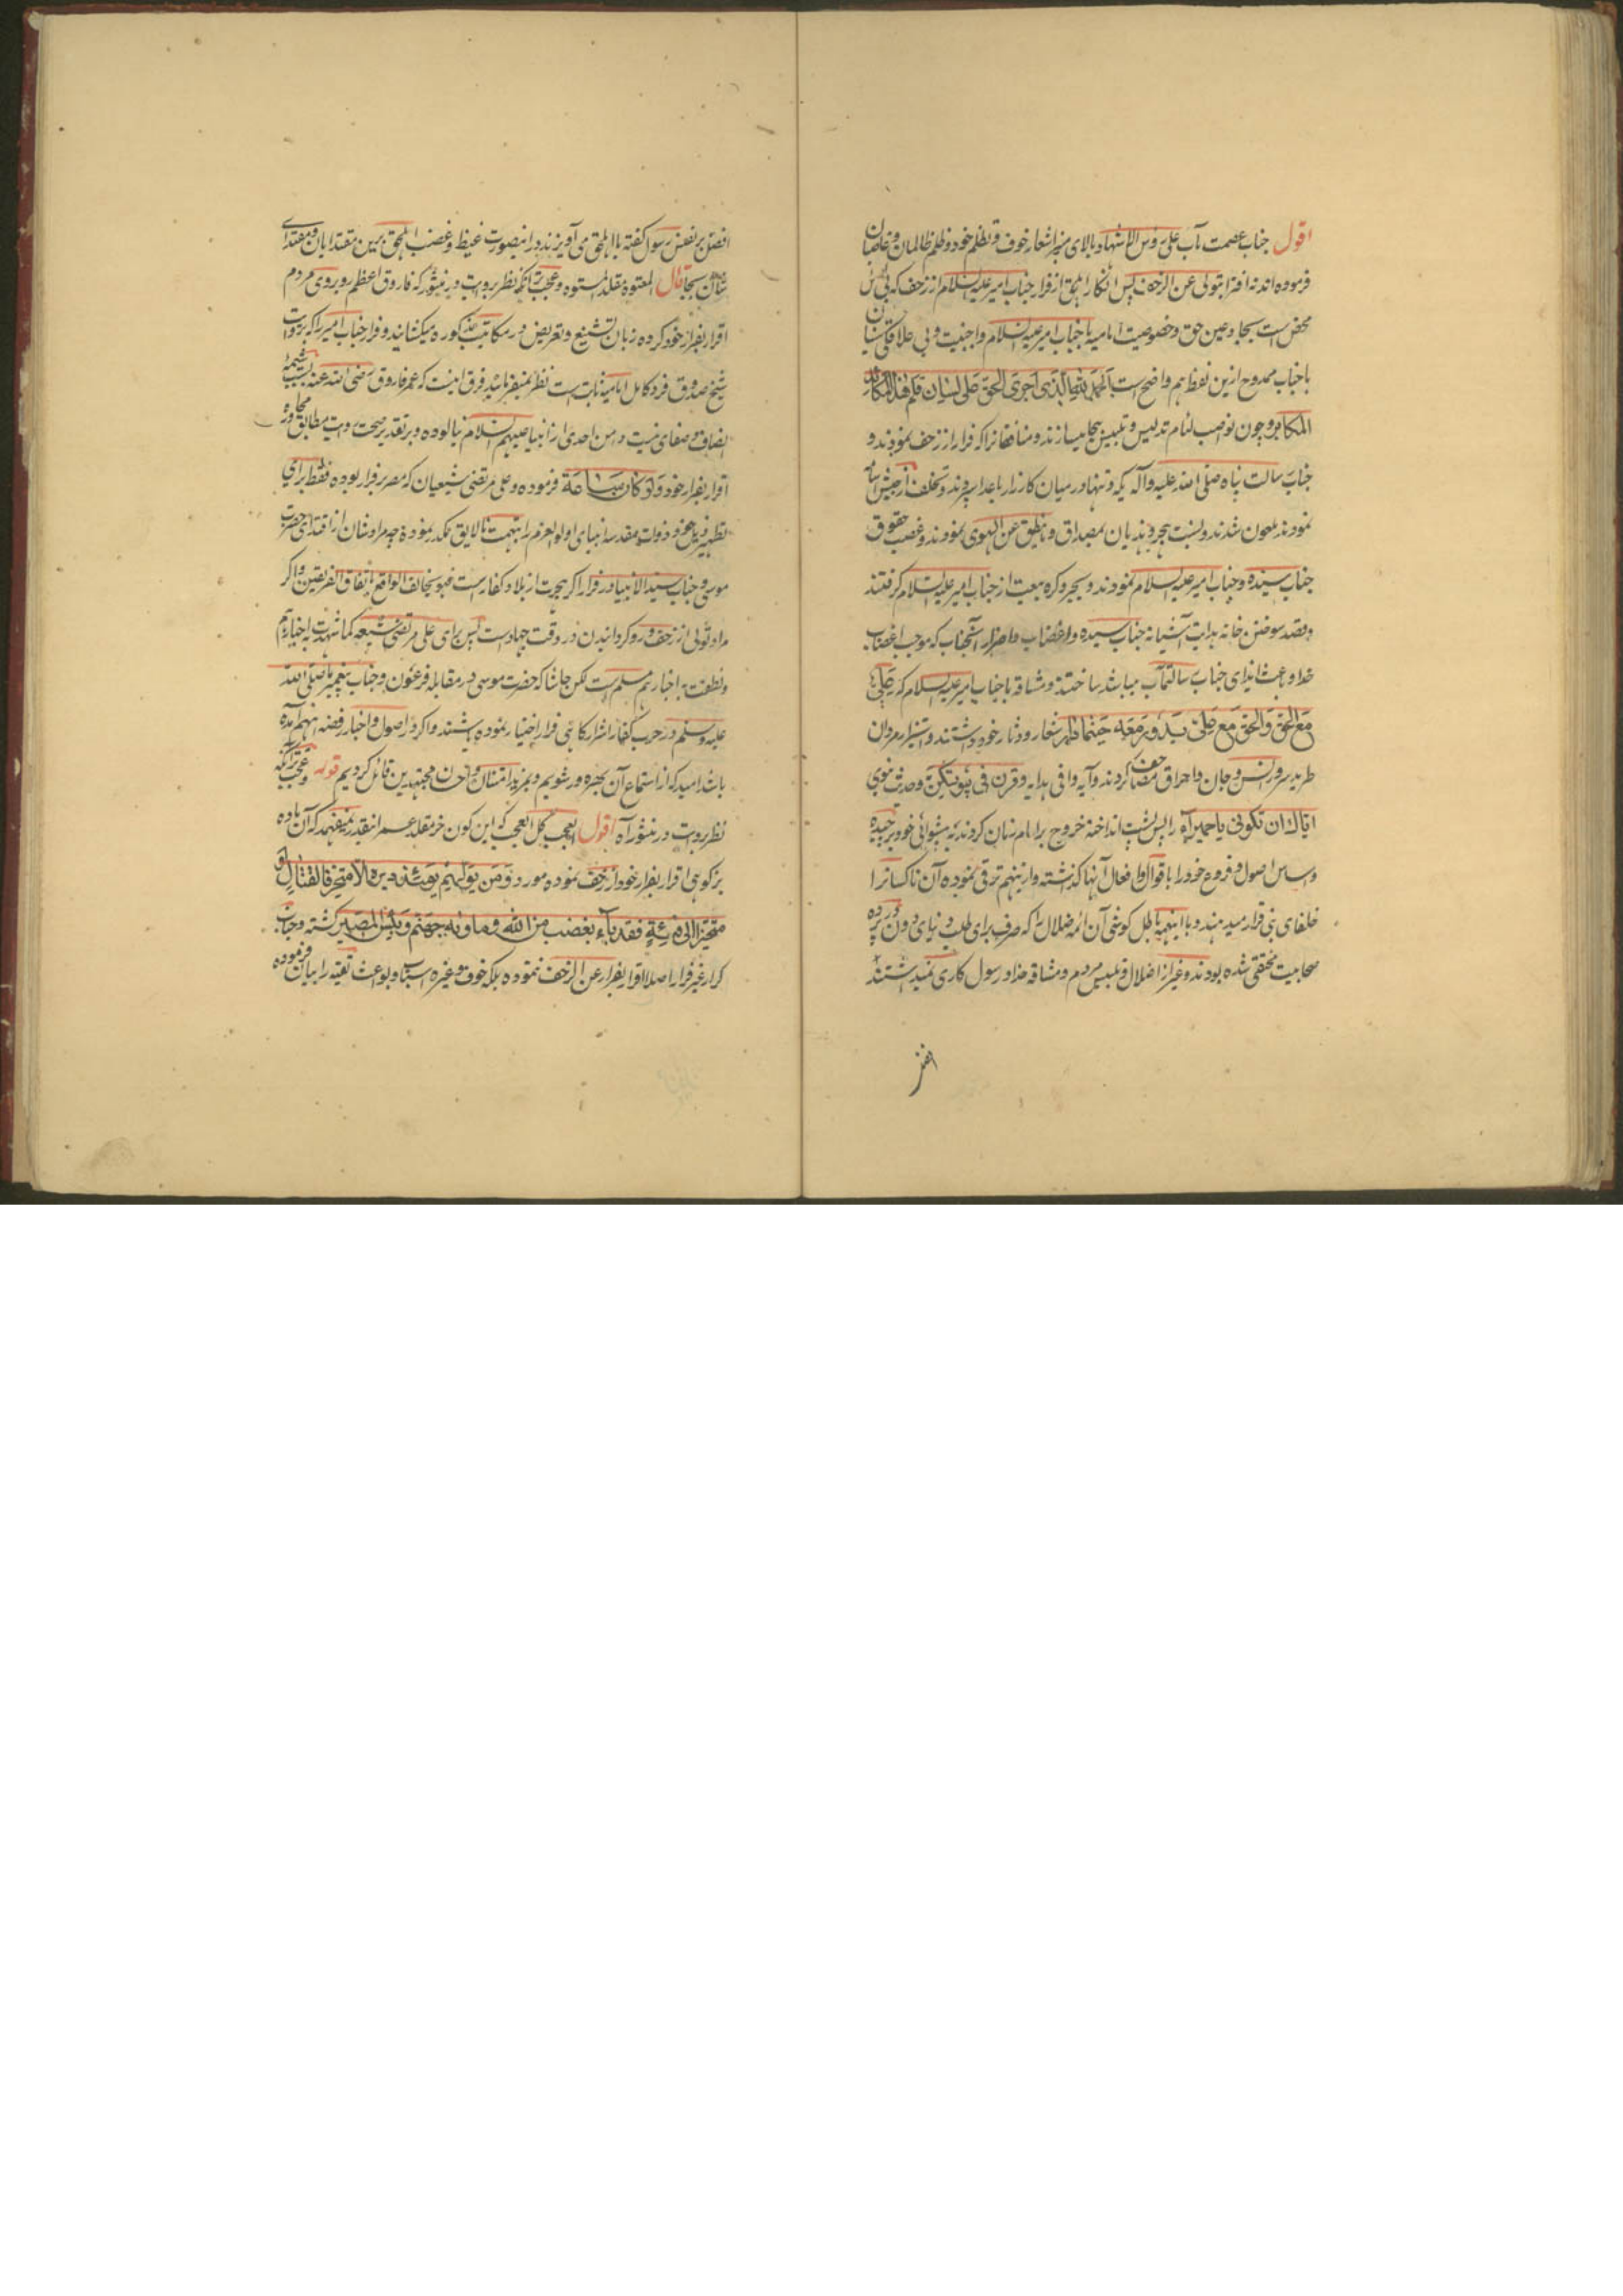 اقول جناب عصمت مآب علی رؤس الاشهاد بالای منبر اشعار خوف و تظلم خود و ظلم ظالمان و غاصبان
فرموده اند نه افترا بتولی عن الزحف پس انکار اهل حق از فرار جناب امیر علیه السلام از زحف که بی
محض است بجا و عین حق و خصوصیت امامیه با جناب امیر علیه السلام و اجنبیت و بی علاقگی سنیان
با جناب ممدوح ازین لفظ هم واضح است الحمد لله الذی اجری الحق علی لسان قلم هذا المکابر
المکابر و چون نواصب لئام تدلیس و تلبیس بیجا میسازند و منافقانرا که فرار از زحف نمودند و
جناب رسالت پناه صلی الله علیه وآله یکه و تنها در میان کارزار باعدا سپردند و تخلف از جیش اسامه
نمودند ملعون شدند و نسبت هجر و هذیان بمصداق و ما ینطق عن الهوی نمودند و غصب حقوق
جناب سیده و جناب امیر علیه السلام نمودند و بجبر و کره بیعت از جناب امیر علیه السلام گرفتند
و قصد سوختن خانه هدایت آشیانه جناب سیده و اغضاب و اضرار آنجناب که موجب اغضاب
خدا و باعث ایذای جناب رسالتمآب میباشد ساختند و مشاقه با جناب امیر علیه السلام که علی
مع الحق والحق مع علی یدور معه حیثما دار شعار و دثار خود داشتند و استیزار مروان
طرید سرور انس و جان و احراق مصاحف کردند و آیه وافی هدایه وقرن فی بیوتکن و حدیث نبوی
ایاک ان تکونی یا حمیرآء را پس پشت انداخته خروج بر امام زمان کردند به پیشوائی خود برچیده
و اساس اصول و فروع خود را باقوال و افعال آنها گذاشته و ازینهم ترقی نموده آن ناکسانرا
خلفای نبی قرار میدهند و با اینهمه باطل کوشی آن ائمه ضلال را که صرف برای طلب دنیای دون در پرده
صحابیت مختفی شده بودند و غیر از اضلال و تلبیس مردم و مشاقه خدا و رسول کاری نمیداشتند
افضل
افضل بر نفس رسول گفته با اهل حق می آویزند در انیصورت غیظ و غضب اهل حق برین مقتدایان و مقتدای
شان بجا قال المعتوه مقلد المستوه و عجب تر آنکه نظر بروایت در منثور که فاروق اعظم روبروی مردم
اقرار بفرار خود کرده زبان تشنیع و تعریض در مکاتیب مذکوره میکشایند و فرار جناب امیر را که بروایت
شیخ صدوق فرد کامل امامیه ثابت است نظر نمیفرمایند فرق اینست که عمر فاروق رضی الله عنه بسبب شیمه
انصاف و صفای نیت دامن احدی را از انبیا علیهم السلام نیالوده و بر تقدیر صحت روایت مطابق محاوره
اقرار بفرار خود ولو کان ساعة فرموده و علی مرتضی شیعیان که مصر بر فرار بوده فقط برای
تطهیر ذیل خود ذوات مقدسه انبیای اولوالعزم را بتهمت نالایق مکدر نموده چه مراد شان از اقتدای حضرت
موسی و جناب سید الانبیا در فرار اگر هجرت از بلاد کفار است فهو بخالف الواقع باتفاق الفریقین و اگر
مراد تولی از زحف و رو گردانیدن در وقت جهاد است پس برای علی مرتضی شیعه کما شهدت به اخبارهم
و نطقت به اخبارهم مسلم است لکن حاشا که حضرت موسی در مقابله فرعون و جناب پیغمبر ما صلی الله
علیه وسلم در حرب کفار اشرار گاهی فرار اختیار نموده باشند و اگر در اصول و اخبار رفضه اینهم آمده
باشد امید که از استماع آن بهره ور شویم و بمزید امتنان و احسان مجتهدین قائل گردیم قوله و عجب تر آنکه
نظر بروایت در منثور آه اقول العجب کل العجب که این کون خر مقلد عمر اینقدر نمیفهمد که آن ماده
بز کوهی اقرار بفرار خود از زحف نموده مورد و من یولهم یومئذ دبره الا متحرفا لقتال او
متحیزا الی فئة فقد بآء بغضب من الله و ماواه جهنم و بئس المصیر گشته و جناب
کرار غیر فرار اصلا اقرار بفرار عن الزحف ننموده بلکه خوف و غیره اسباب و بواعث تقیه را بیان فرموده